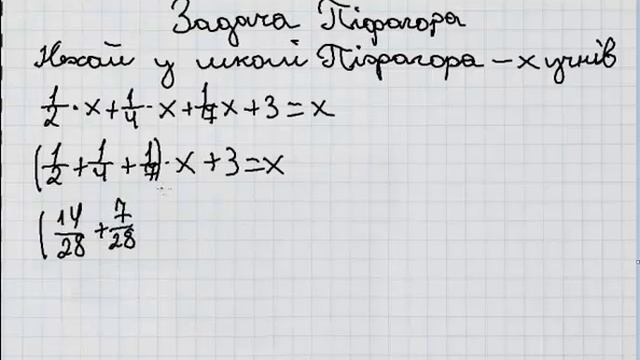 Задача Піфагора
Нехай у школі Піфагора – x учнів
1/2 · x + 1/4 · x + 1/7 x + 3 = x
(1/2 + 1/4 + 1/7) · x + 3 = x
(14/28 + 7/28